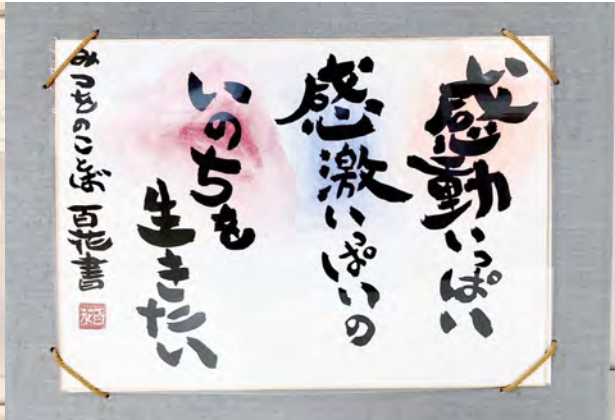 感動いっぱい
感激いっぱいの
いのちを
生きたい
みつをのことば 百花書